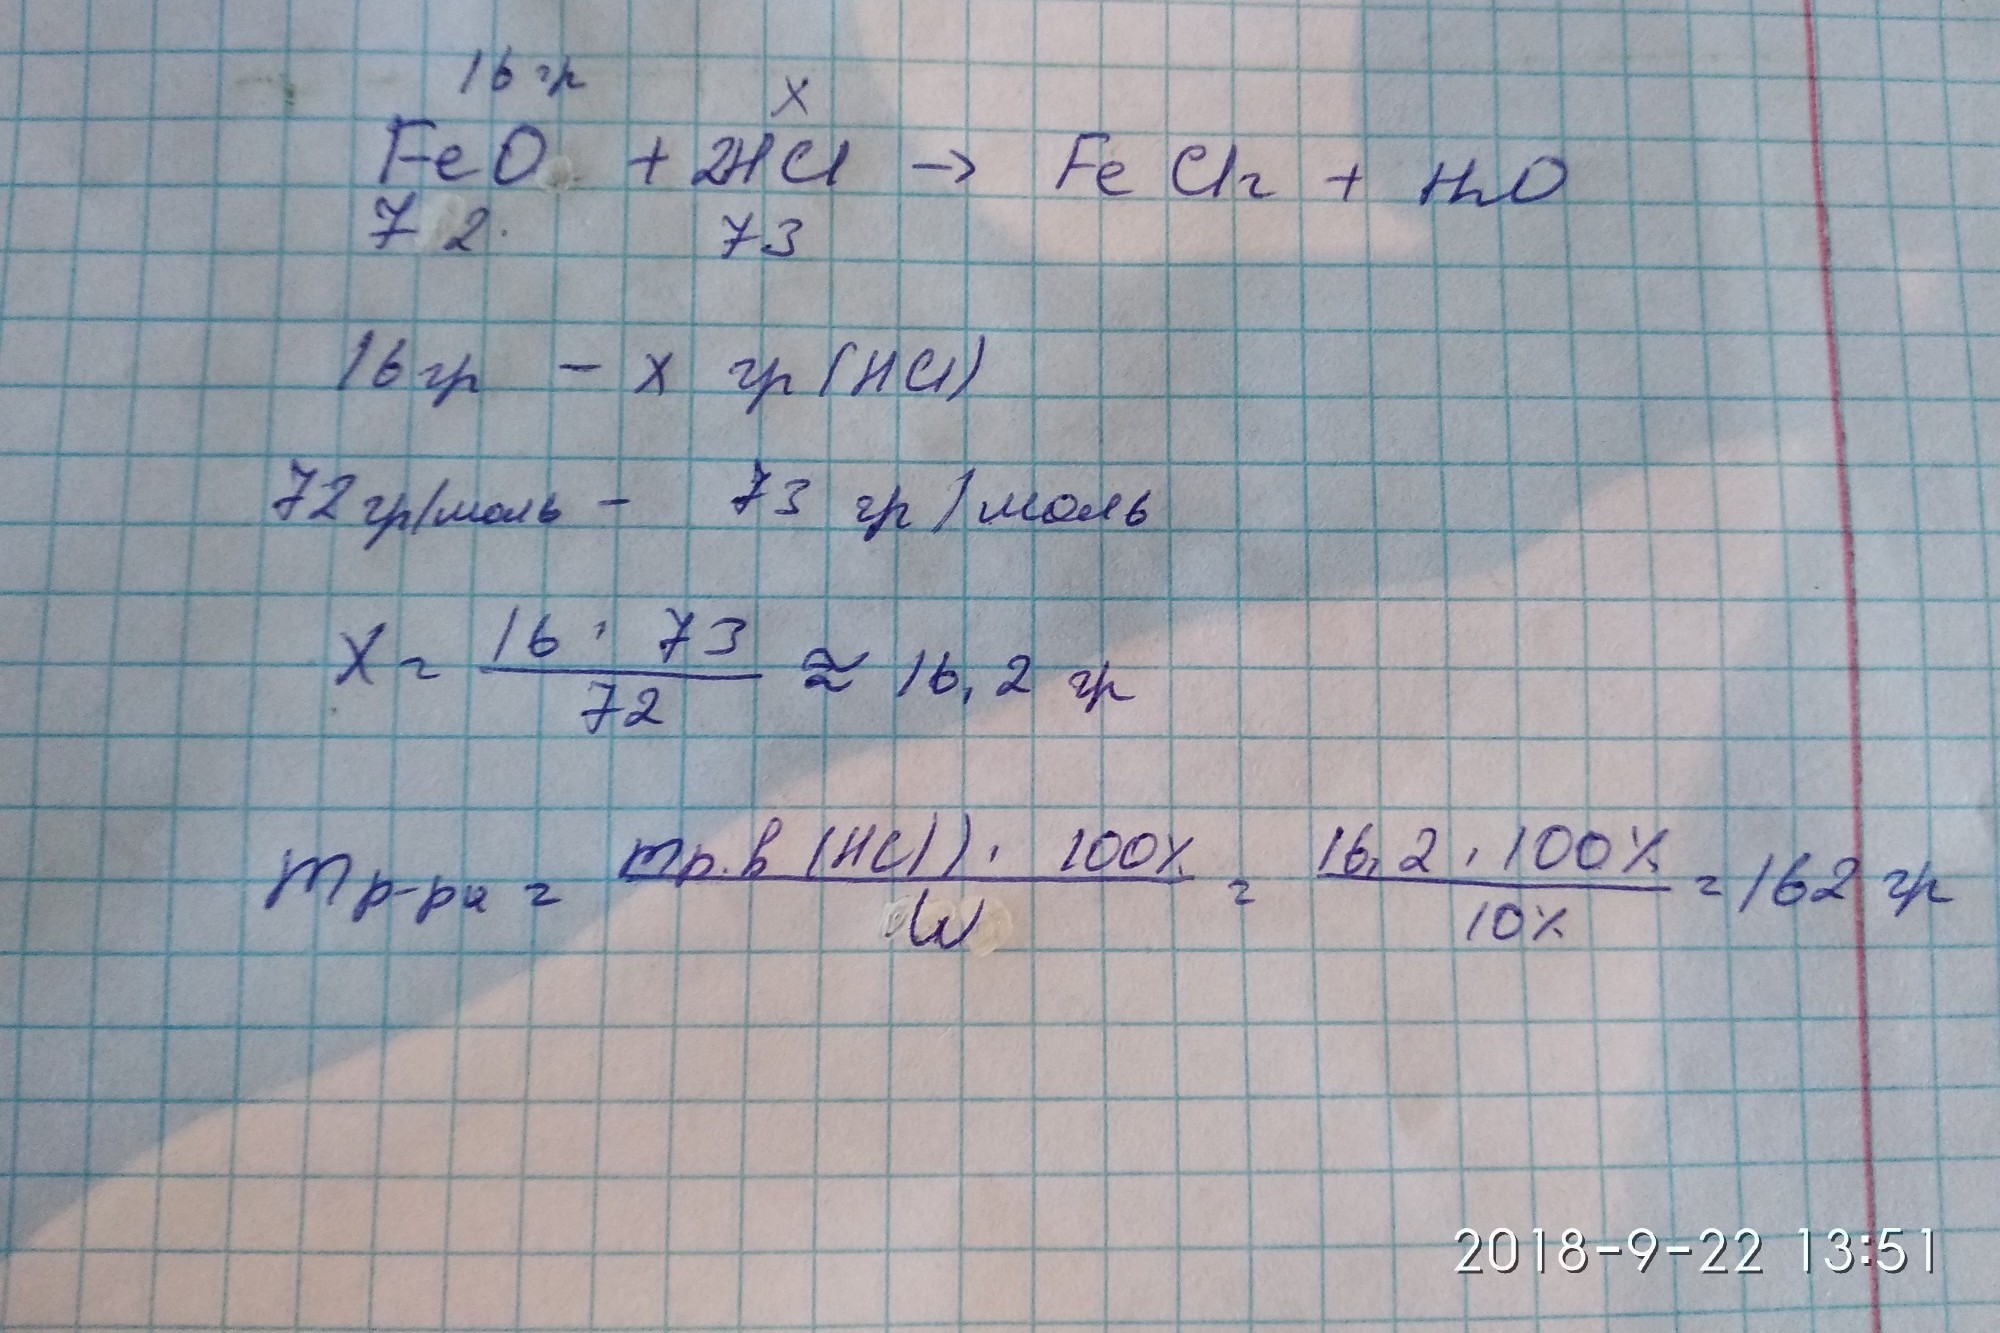 16 гр
x
FeO + 2HCl → FeCl2 + H2O
72 73
16 гр - x гр (HCl)
72 гр/моль - 73 гр/моль
x = 16 · 73 / 72 ≈ 16,2 гр
mр-ра = mр.в (HCl) · 100% / W = 16,2 · 100% / 10% = 162 гр
2018-9-22 13:51